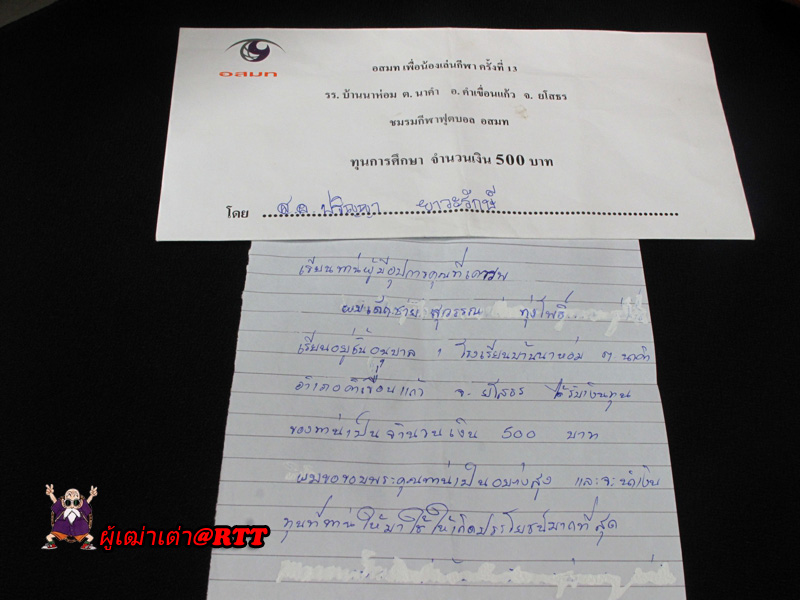 อสมท
อสมท เพื่อน้องเล่นกีฬา ครั้งที่ 13
รร. บ้านนาห่อม ต. นาคำ อ. คำเขื่อนแก้ว จ. ยโสธร
ชมรมกีฬาฟุตบอล อสมท
ทุนการศึกษา จำนวนเงิน 500 บาท
โดย ส.อ ปริญญา
เขียนท่านผู้มีอุปการคุณที่เคารพ
ผมเด็กชาย สุวรรณ ทุ่งโพธิ์
เรียนอยู่ชั้นอนุบาล 1 โรงเรียนบ้านนาห่อม ต นาคำ
อำเภอคำเขื่อนแก้ว จ. ยโสธร ได้รับเงินทุน
ของท่านเป็นจำนวนเงิน 500 บาท
ผมขอขอบพระคุณท่านเป็นอย่างสูง และจะนำเงิน
ทุนที่ท่านให้มาใช้ให้เกิดประโยชน์มากที่สุด
ผู้เฒ่าเต่า@RTT